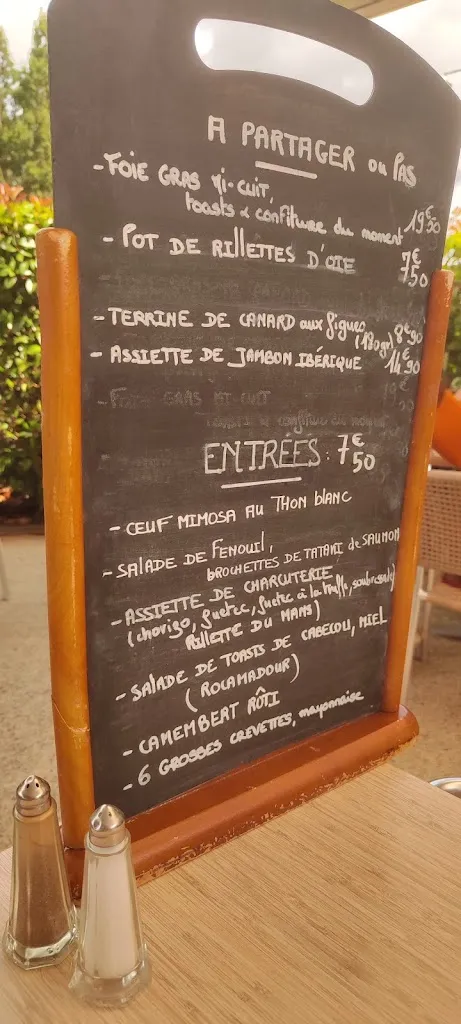 A PARTAGER ou PAS
- FOIE GRAS MI-CUIT,
toasts & confiture du moment 19€50
- POT DE RILLETTES D'OIE 7€50
- TERRINE DE CANARD aux figues (180gr) 8€90
- ASSIETTE DE JAMBON IBÉRIQUE 14€90
- FOIE GRAS MI-CUIT
ENTRÉES: 7€50
- OEUF MIMOSA AU THON blanc
- SALADE DE FENOUIL,
BROCHETTES DE TATAKI de SAUMON
- ASSIETTE DE CHARCUTERIE
(chorizo, fuetec, fuetec à la truffe, soubressade,
RILLETTE DU MANS)
- SALADE DE TOASTS DE CABECOU, MIEL
(ROCAMADOUR)
- CAMEMBERT RÔTI
- 6 GROSSES CREVETTES, mayonnaise